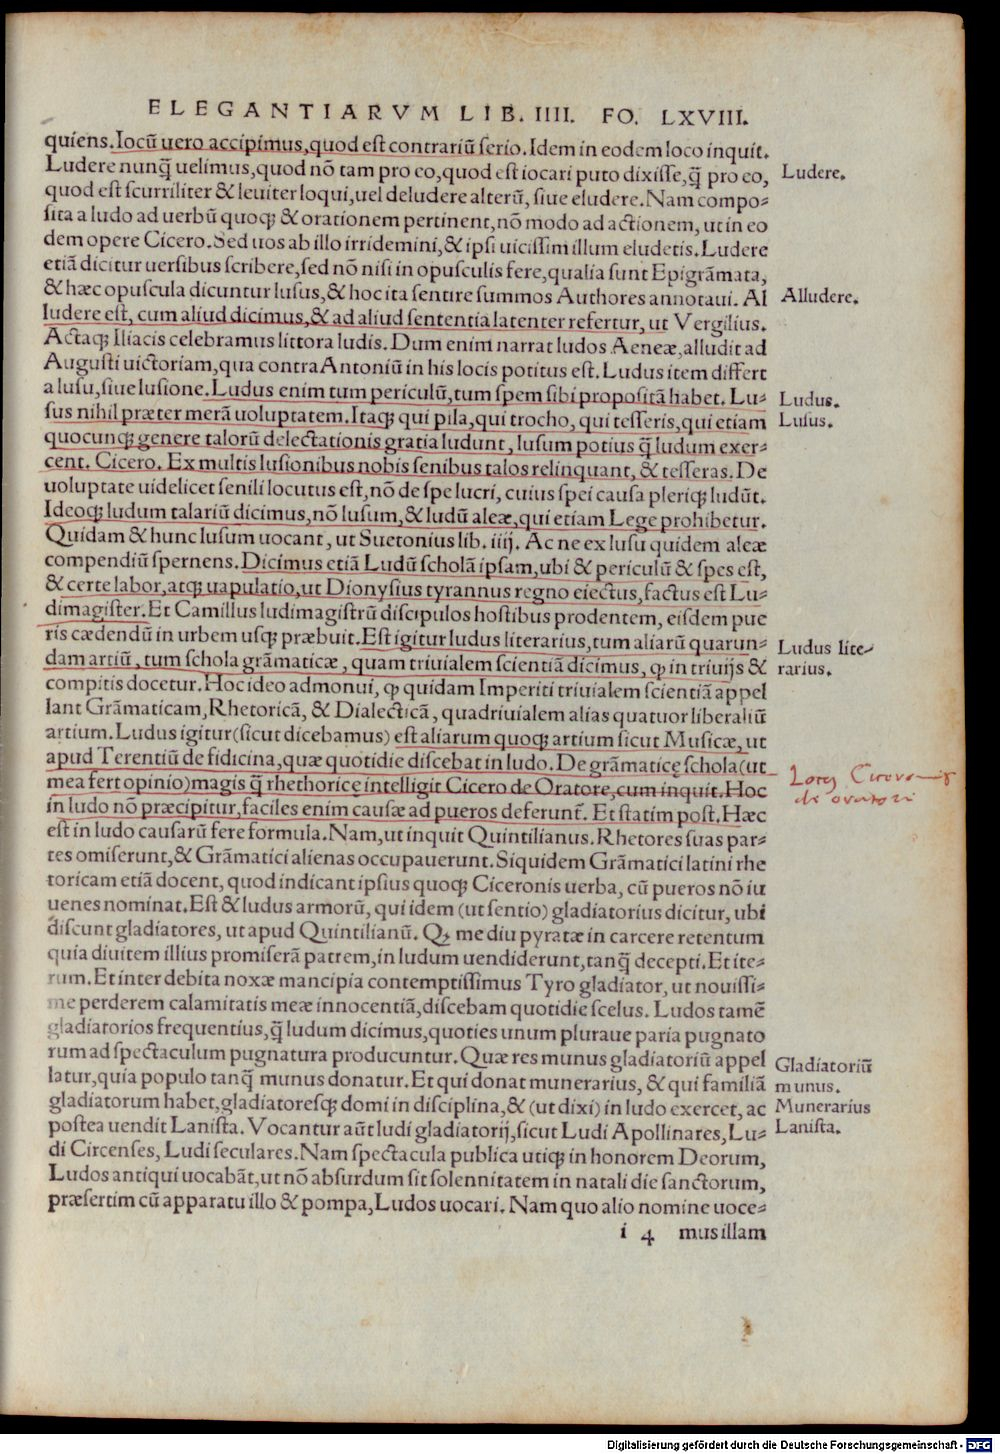 ELEGANTIARVM LIB. IIII. FO. LXVIII.
quiens. Iocũ uero accipimus, quod est contrariũ serio. Idem in eodem loco inquit.
Ludere nunq̃ uelimus, quod nõ tam pro eo, quod est iocari puto dixisse, q̃ pro eo,
Ludere.
quod est scurriliter & leuiter loqui, uel deludere alterũ, siue eludere. Nam compo-
sita a ludo ad uerbũ quoqꝫ & orationem pertinent, nõ modo ad actionem, ut in eo
dem opere Cicero. Sed uos ab illo irridemini, & ipsi uicissim illum eludetis. Ludere
etiã dicitur uersibus scribere, sed nõ nisi in opusculis fere, qualia sunt Epigrãmata,
& hæc opuscula dicuntur lusus, & hoc ita sentire summos Authores annotaui. Al
Alludere.
ludere est, cum aliud dicimus, & ad aliud sententia latenter refertur, ut Vergilius.
Actaqꝫ Iliacis celebramus littora ludis. Dum enim narrat ludos Aeneæ, alludit ad
Augusti uictoriam, qua contra Antoniũ in his locis potitus est. Ludus item differt
a lusu, siue lusione. Ludus enim tum periculũ, tum spem sibi propositã habet. Lu-
Ludus.
sus nihil præter merã uoluptatem. Itaqꝫ qui pila, qui trocho, qui tesseris, qui etiam
Lusus.
quocunqꝫ genere talorũ delectationis gratia ludunt, lusum potius q̃ ludum exer-
cent. Cicero. Ex multis lusionibus nobis senibus talos relinquant, & tesseras. De
uoluptate uidelicet senili locutus est, nõ de spe lucri, cuius spei causa pleriqꝫ ludũt.
Ideoqꝫ ludum talariũ dicimus, nõ lusum, & ludũ aleæ, qui etiam Lege prohibetur.
Quidam & hunc lusum uocant, ut Suetonius lib. iiij. Ac ne ex lusu quidem aleæ
compendiũ spernens. Dicimus etiã Ludũ scholã ipsam, ubi & periculũ & spes est,
& certe labor, atqꝫ uapulatio, ut Dionysius tyrannus regno eiectus, factus est Lu-
dimagister. Et Camillus ludimagistrũ discipulos hostibus prodentem, eisdem pue
ris cædendũ in urbem usqꝫ præbuit. Est igitur ludus literarius, tum aliarũ quarun-
Ludus lite-
dam artiũ, tum schola grãmaticæ, quam triuialem scientiã dicimus, ꝙ in triuijs &
rarius.
compitis docetur. Hoc ideo admonui, ꝙ quidam Imperiti triuialem scientiã appel
lant Grãmaticam, Rhetoricã, & Dialecticã, quadriuialem alias quatuor liberaliũ
artium. Ludus igitur (sicut dicebamus) est aliarum quoqꝫ artium sicut Musicæ, ut
apud Terentiũ de fidicina, quæ quotidie discebat in ludo. De grãmaticę schola (ut
mea fert opinio) magis q̃ rhethoricę intelligit Cicero de Oratore, cum inquit. Hoc
in ludo nõ præcipitur, faciles enim causæ ad pueros deferunt̃. Et statim post. Hæc
de oratori
est in ludo causarũ fere formula. Nam, ut inquit Quintilianus. Rhetores suas par-
tes omiserunt, & Grãmatici alienas occupauerunt. Siquidem Grãmatici latini rhe
toricam etiã docent, quod indicant ipsius quoqꝫ Ciceronis uerba, cũ pueros nõ iu
uenes nominat. Est & ludus armorũ, qui idem (ut sentio) gladiatorius dicitur, ubi
discunt gladiatores, ut apud Quintilianũ. Qꝫ me diu pyratæ in carcere retentum
quia diuitem illius promiserã patrem, in ludum uendiderunt, tanq̃ decepti. Et ite-
rum. Et inter debita noxæ mancipia contemptissimus Tyro gladiator, ut nouissi-
me perderem calamitatis meæ innocentiã, discebam quotidie scelus. Ludos tamẽ
gladiatorios frequentius, q̃ ludum dicimus, quoties unum pluraue paria pugnato
rum ad spectaculum pugnatura producuntur. Quæ res munus gladiatoriũ appel
Gladiatoriũ
latur, quia populo tanq̃ munus donatur. Et qui donat munerarius, & qui familiã
munus.
gladiatorum habet, gladiatoresqꝫ domi in disciplina, & (ut dixi) in ludo exercet, ac
Munerarius
postea uendit Lanista. Vocantur aũt ludi gladiatorij, sicut Ludi Apollinares, Lu-
Lanista.
di Circenses, Ludi seculares. Nam spectacula publica utiqꝫ in honorem Deorum,
Ludos antiqui uocabãt, ut nõ absurdum sit solennitatem in natali die sanctorum,
præsertim cũ apparatu illo & pompa, Ludos uocari. Nam quo alio nomine uoce-
i 4 mus illam
Digitalisierung gefördert durch die Deutsche Forschungsgemeinschaft - DFG